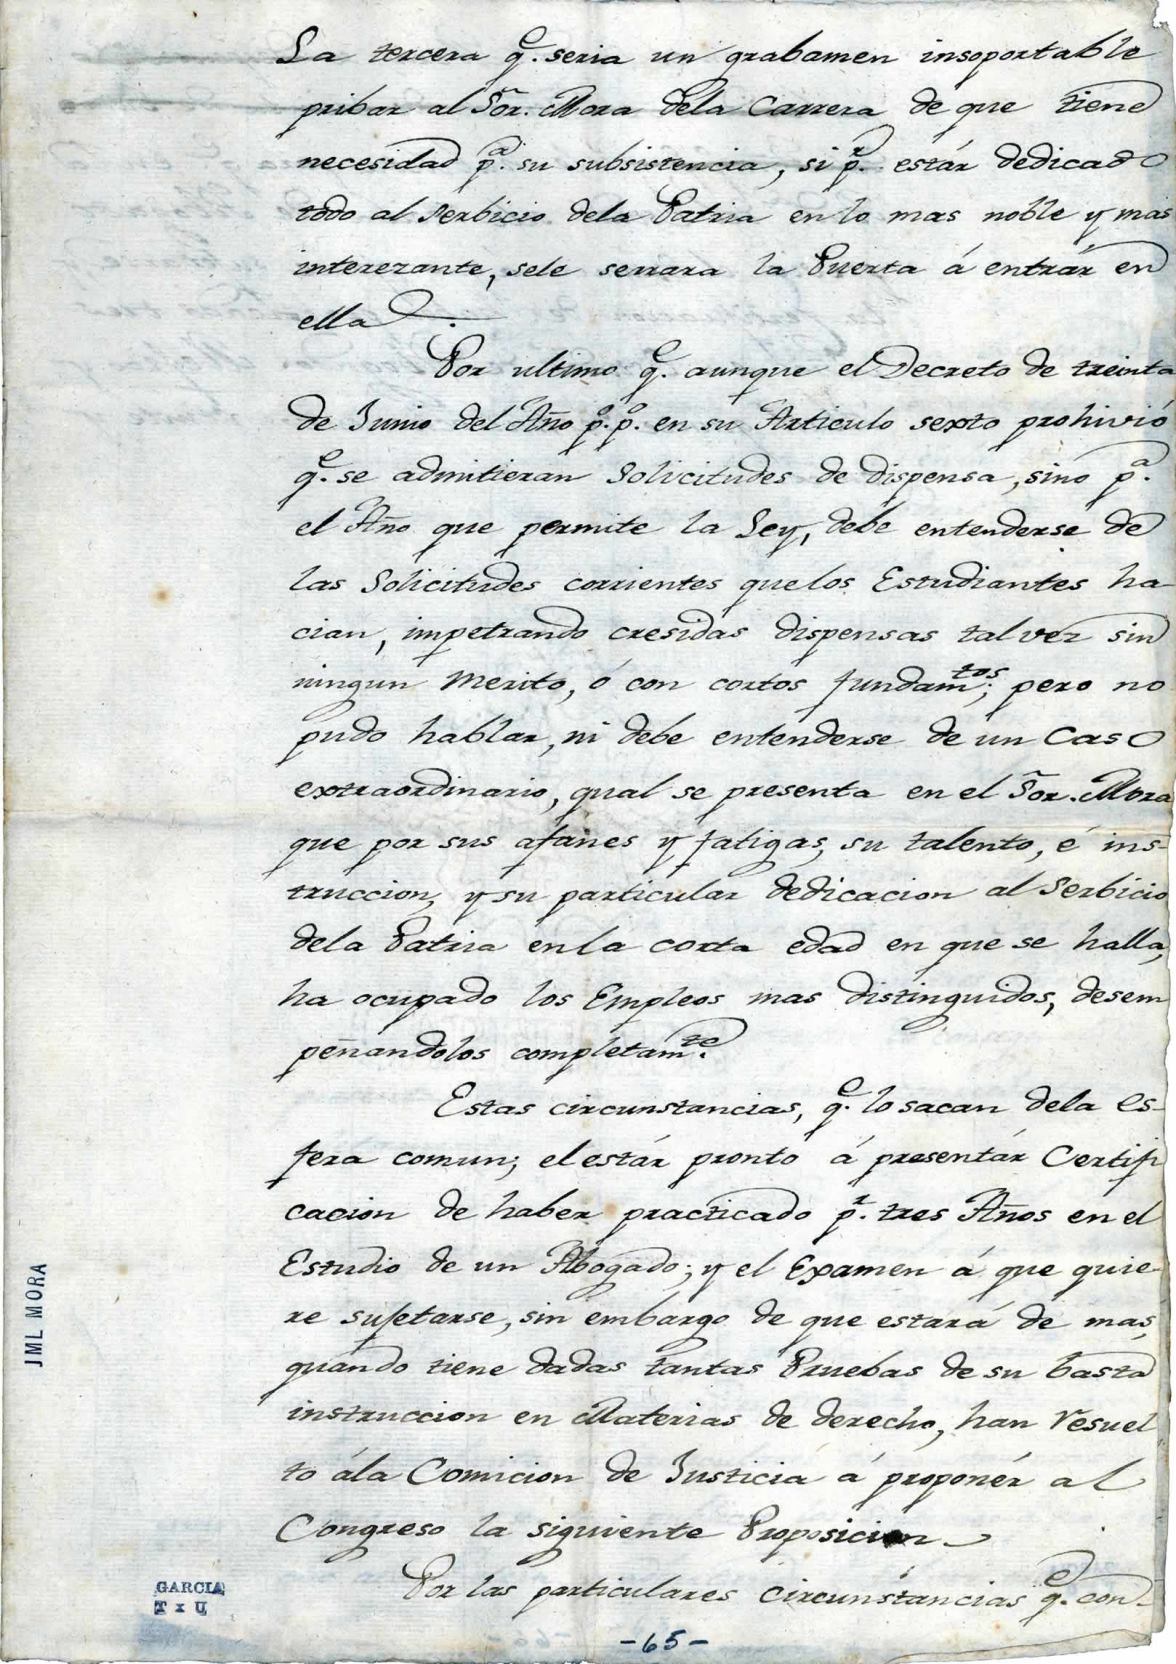 La tercera qe. seria un grabamen insoportable
pribar al Sor. Mora dela Carrera de que tiene
necesidad pa. su subsistencia, si pr. estár dedicado
todo al serbicio dela Patria en lo mas noble y mas
interezante, sele serrara la Puerta á entrár en
ella.
Por ultimo qe. aunque el Decreto de treinta
de Junio del Año po. po. en su Articulo sexto prohivió
qe. se admitieran Solicitudes de dispensa, sino pa.
el Año que permite la Ley, debe entenderse de
las Solicitudes corrientes que los Estudiantes ha-
cian, impetrando cresidas dispensas tal vez sin
ningun Merito, ó con cortos fundamtos; pero no
pudo hablar, ni debe entenderse de un Caso
extraordinario, qual se presenta en el Sor. Mora
que por sus afanes y fatigas, su talento, é ins-
truccion, y su particular dedicacion al Serbicio
dela Patria en la corta edad en que se halla,
ha ocupado los Empleos mas distinguidos, desem
peñandolos completamte.
Estas circunstancias, qe. lo sacan dela es-
fera comun; el estár pronto á presentár Certifi
cacion de haber practicado pr. tres Años en el
Estudio de un Abogado; y el Examen á que quie-
re sujetarse, sin embargo de que estará de mas,
quando tiene dadas tantas Pruebas de su basta
instruccion en Materias de derecho, han resuel
to ála Comicion de Justicia á proponér al
Congreso la siguiente Proposicion
Por las particulares circunstancias qe. con-
JML MORA
GARCIA
-65-